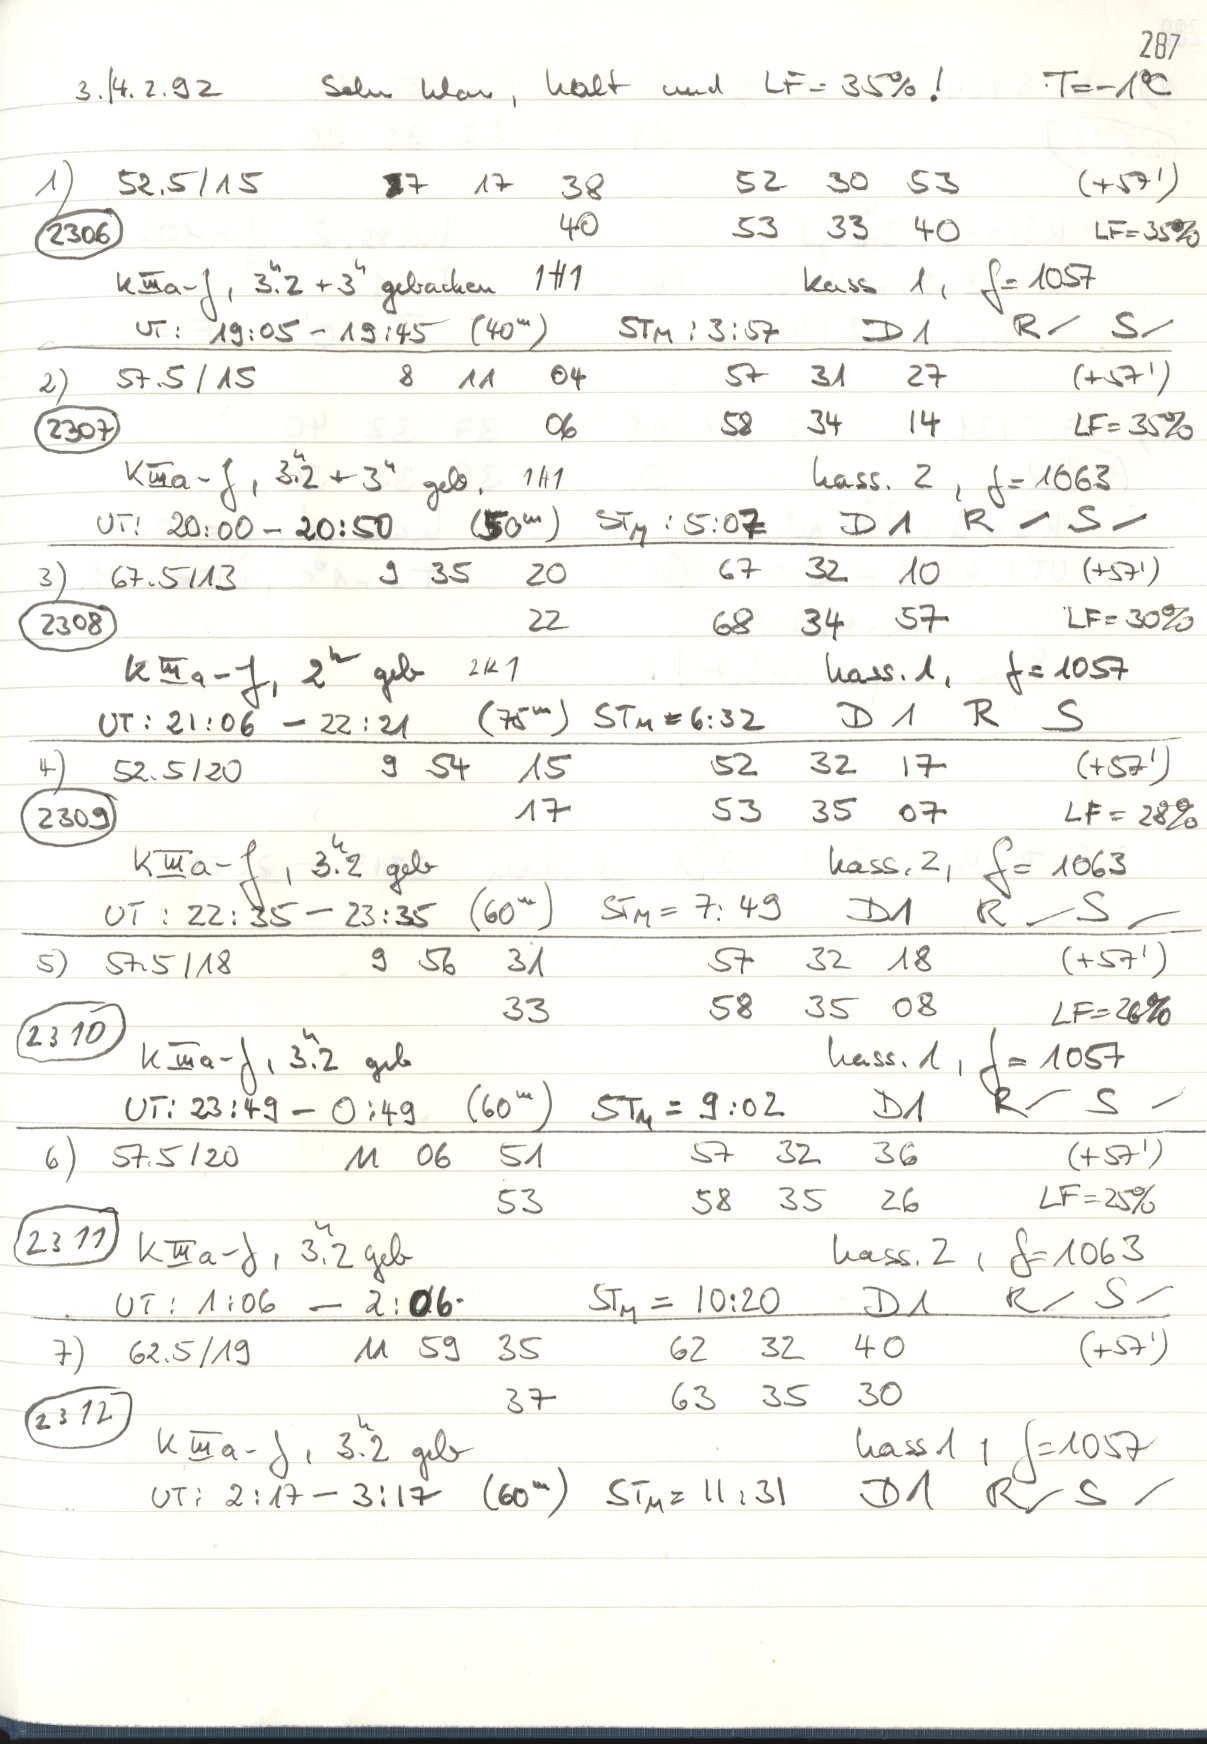 287
3./4.2.92 Sehr klar, kalt und LF = 35%! T = -1°C
1) 52.5/15 7 17 38 52 30 53 (+57')
2306 40 53 33 40 LF=35%
KIIIa-J, 3h.2 + 3h gebacken 1H1 Kass 1, f=1057
UT: 19:05 - 19:45 (40m) STM: 3:57 D1 R✓ S✓
2) 57.5/15 8 11 04 57 31 27 (+57')
2307 06 58 34 14 LF=35%
KIIIa-J, 3h.2 + 3h geb. 1H1 kass. 2, f=1063
UT: 20:00 - 20:50 (50m) STM: 5:07 D1 R✓ S✓
3) 67.5/13 9 35 20 67 32 10 (+57')
2308 22 68 34 57 LF=30%
KIIIa-J, 2h geb 2K1 kass. 1, f=1057
UT: 21:06 - 22:21 (75m) STM=6:32 D1 R S
4) 52.5/20 9 54 15 52 32 17 (+57')
2309 17 53 35 07 LF=28%
KIIIa-J, 3h.2 geb kass. 2, f=1063
UT: 22:35 - 23:35 (60m) STM=7:49 D1 R✓ S✓
5) 57.5/18 9 56 31 57 32 18 (+57')
2310 33 58 35 08 LF=26%
KIIIa-J, 3h.2 geb kass. 1, f=1057
UT: 23:49 - 0:49 (60m) STM=9:02 D1 R✓ S✓
6) 57.5/20 11 06 51 57 32 36 (+57')
53 58 35 26 LF=25%
2311 KIIIa-J, 3h.2 geb kass. 2, f=1063
UT: 1:06 - 2:06. STM=10:20 D1 R✓ S✓
7) 62.5/19 11 59 35 62 32 40 (+57')
2312 37 63 35 30
KIIIa-J, 3h.2 geb kass 1, f=1057
UT: 2:17 - 3:17 (60m) STM=11:31 D1 R✓ S✓